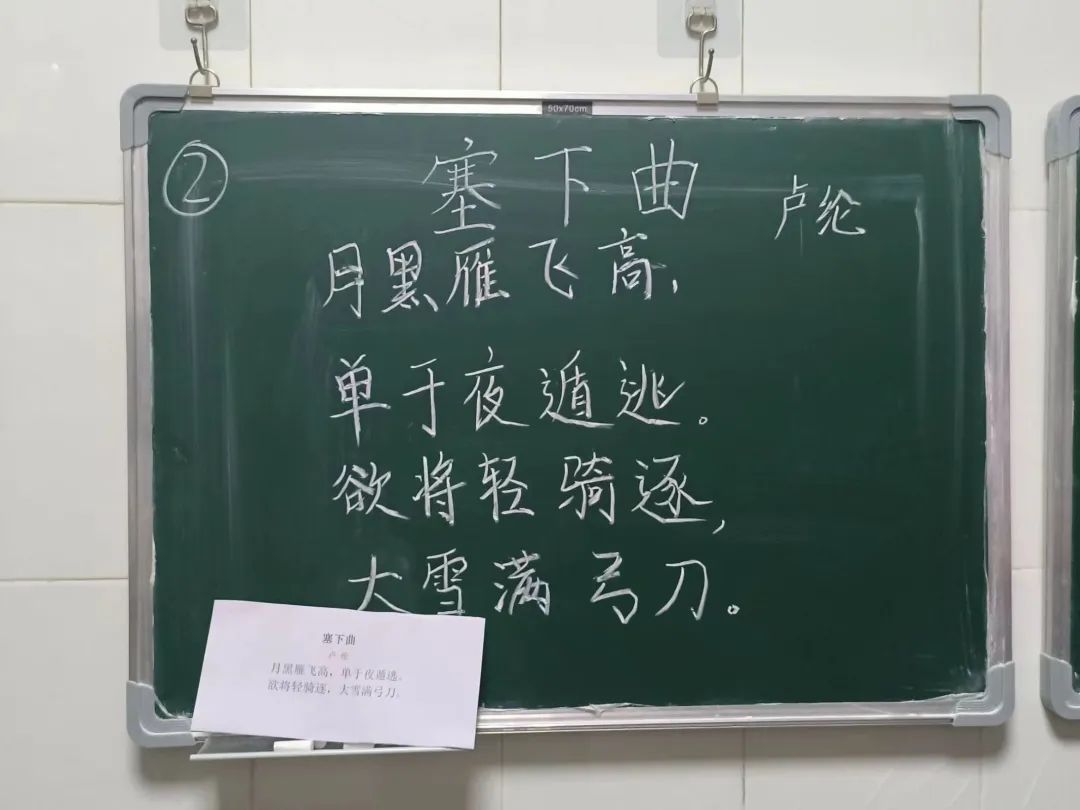 50x70cm
②
塞下曲
卢纶
月黑雁飞高,
单于夜遁逃。
欲将轻骑逐,
大雪满弓刀。
塞下曲
卢纶
月黑雁飞高，单于夜遁逃。
欲将轻骑逐，大雪满弓刀。